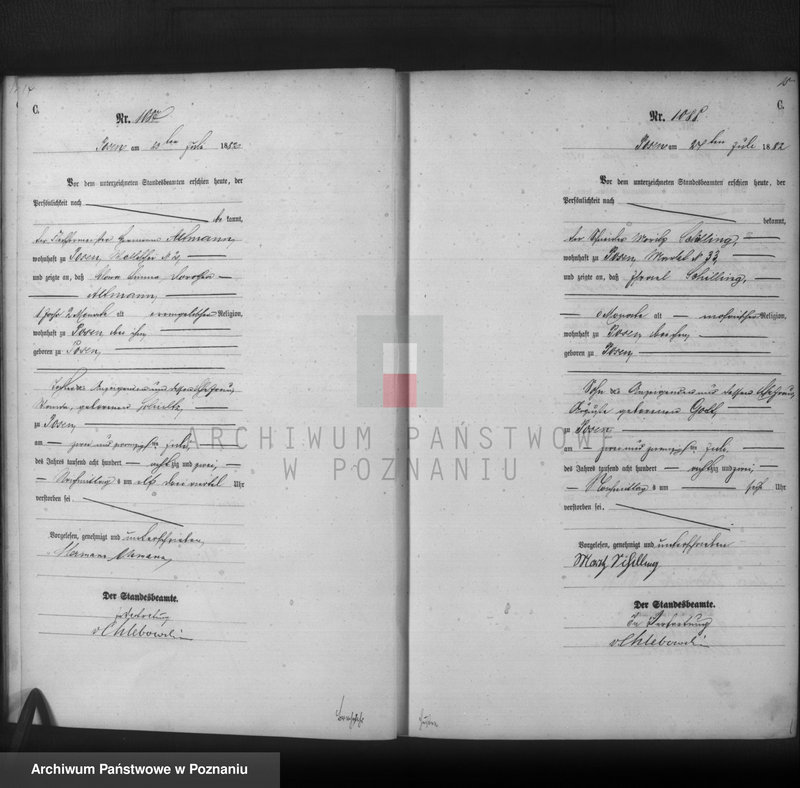 C.
Nr. 1087
Posen am ten Juli 1882
Vor dem unterzeichneten Standesbeamten erschien heute, der
Persönlichkeit nach
be kannt,
der Hermann Altmann,
wohnhaft zu Posen,
und zeigte an, daß Clara Emma Dorothea
Altmann,
1 Jahr 2 Monate alt evangelischer Religion,
wohnhaft zu Posen bei ihm
geboren zu Posen,
Tochter des Anzeigenden und dessen Ehefrau,
geborenen
zu Posen,
am zwei und zwanzigsten Juli,
des Jahres tausend acht hundert achtzig und zwei,
Vormittag s um elf drei viertel Uhr
verstorben sei.
Vorgelesen, genehmigt und unterschrieben,
Hermann Altmann,
Der Standesbeamte.
In Vertretung
v Chlebowski
C.
Nr. 1088
Posen am ten Juli 1882
Vor dem unterzeichneten Standesbeamten erschien heute, der
Persönlichkeit nach
bekannt,
der Schneider Moritz Schilling,
wohnhaft zu Posen,
und zeigte an, daß Israel Schilling,
6 Monate alt mosaischer Religion,
wohnhaft zu Posen bei ihm,
geboren zu Posen,
Sohn des Anzeigenden und dessen Ehefrau,
geborenen
zu Posen
am zwei und zwanzigsten Juli,
des Jahres tausend acht hundert achtzig und zwei,
Nachmittag s um Uhr
verstorben sei.
Vorgelesen, genehmigt und unterschrieben
Moritz Schilling
Der Standesbeamte.
In Vertretung
v Chlebowski
ARCHIWUM PAŃSTWOWE
W POZNANIU
Archiwum Państwowe w Poznaniu